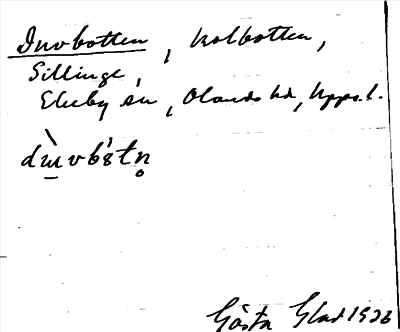 Duvbotten, kolbotten,
Sillinge,
Ekeby sn, Olands hd, Upps. l.
Gösta Glad 1926